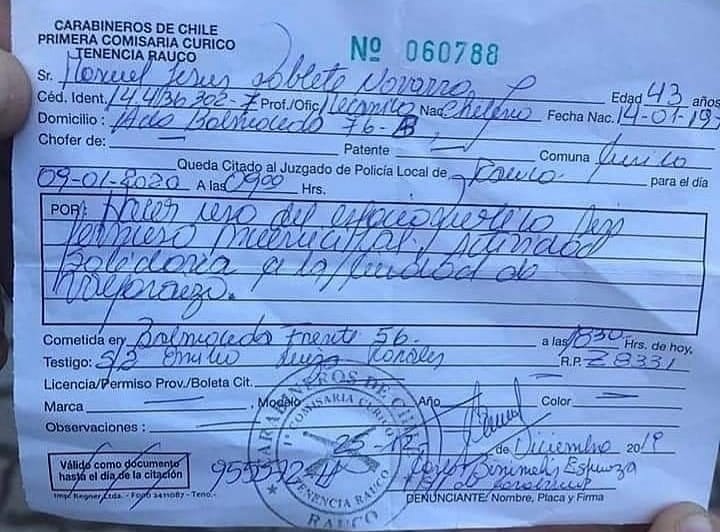 CARABINEROS DE CHILE
PRIMERA COMISARIA CURICO
TENENCIA RAUCO
Nº 060788
Sr. Manuel Jesus Poblete Navarro Edad 43 años
Céd. Ident. 14.436.302-7 Prof./Ofic. Tecnico Nac. Chilena Fecha Nac. 14-01-197
Domicilio : Balmaceda 76-B
Chofer de: Patente Comuna Curico
Queda Citado al Juzgado de Policía Local de Rauco para el día
09-01-2020 A las 0900 Hrs.
POR: Hacer uso del espacio publico sin
permiso municipal, actividad
solidaria a la ciudad de
Valparaizo.
Cometida en Balmaceda Frente 56. a las 1830 Hrs. de hoy.
Testigo: S/2 Emilio Morales R.P. Z 8331
Licencia/Permiso Prov./Boleta Cit.
Marca Modelo Año Color
Observaciones :
25-12 de Diciembre 2019
Válido como documento
hasta el día de la citación
955592-H
Espinoza
Impr. Regner Ltda. - Fono 2411087 - Teno.-
DENUNCIANTE: Nombre, Placa y Firma
CARABINEROS DE CHILE
1ª COMISARIA CURICO
TENENCIA RAUCO
RAUCO